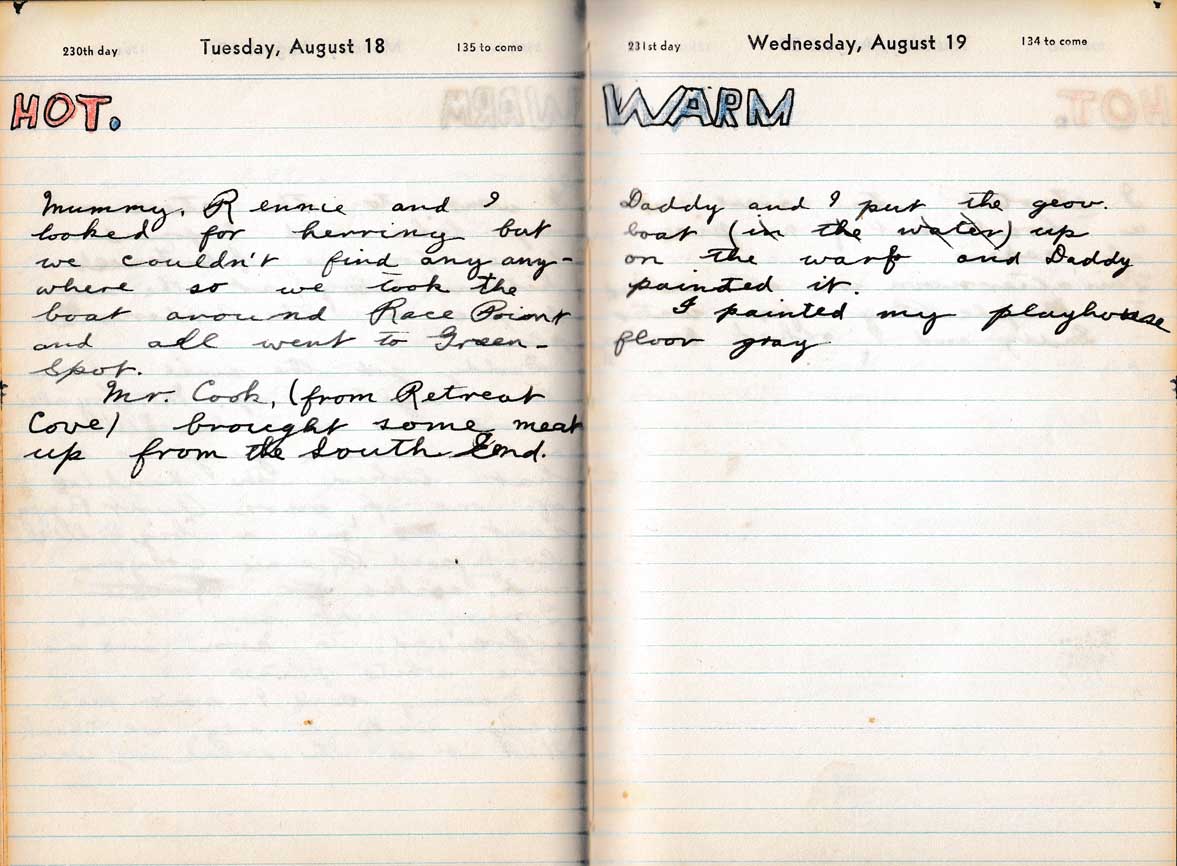 230th day Tuesday, August 18 135 to come
HOT.
Mummy, Rennie and I
looked for herring but
we couldn't find any any-
where so we took the
boat around Race Point
and all went to Green-
Spot.
Mr. Cook, (from Retreat
Cove) brought some meat
up from the South End.
231st day Wednesday, August 19 134 to come
WARM
Daddy and I put the gov.
boat (in the water) up
on the warf and Daddy
painted it.
I painted my playhouse
floor gray